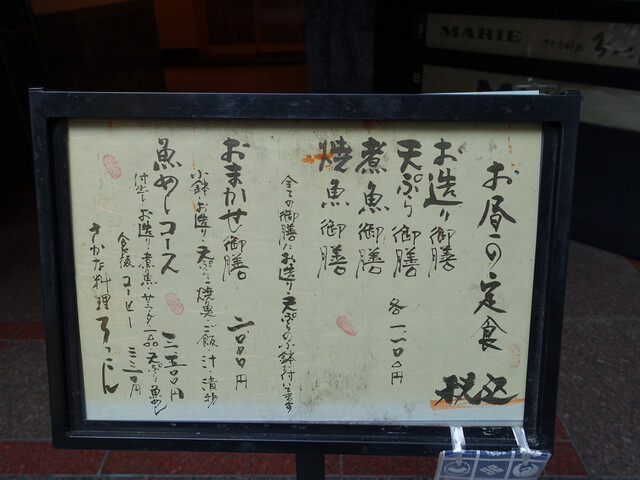 お昼の定食
税込
お造り御膳
天ぷら御膳
煮魚御膳
焼魚御膳
各一、二〇〇円
全ての御膳にお造り、天ぷらの小鉢が付いてます
おまかせ御膳 二、〇〇〇円
小鉢、お造り、天ぷら、焼魚、ご飯、汁、漬物
魚めしコース 三、五〇〇円
付出し、お造り、煮魚、サラダ、一品、天ぷら、魚めし
食後コーヒー 三三〇円
さかな料理
MARIE